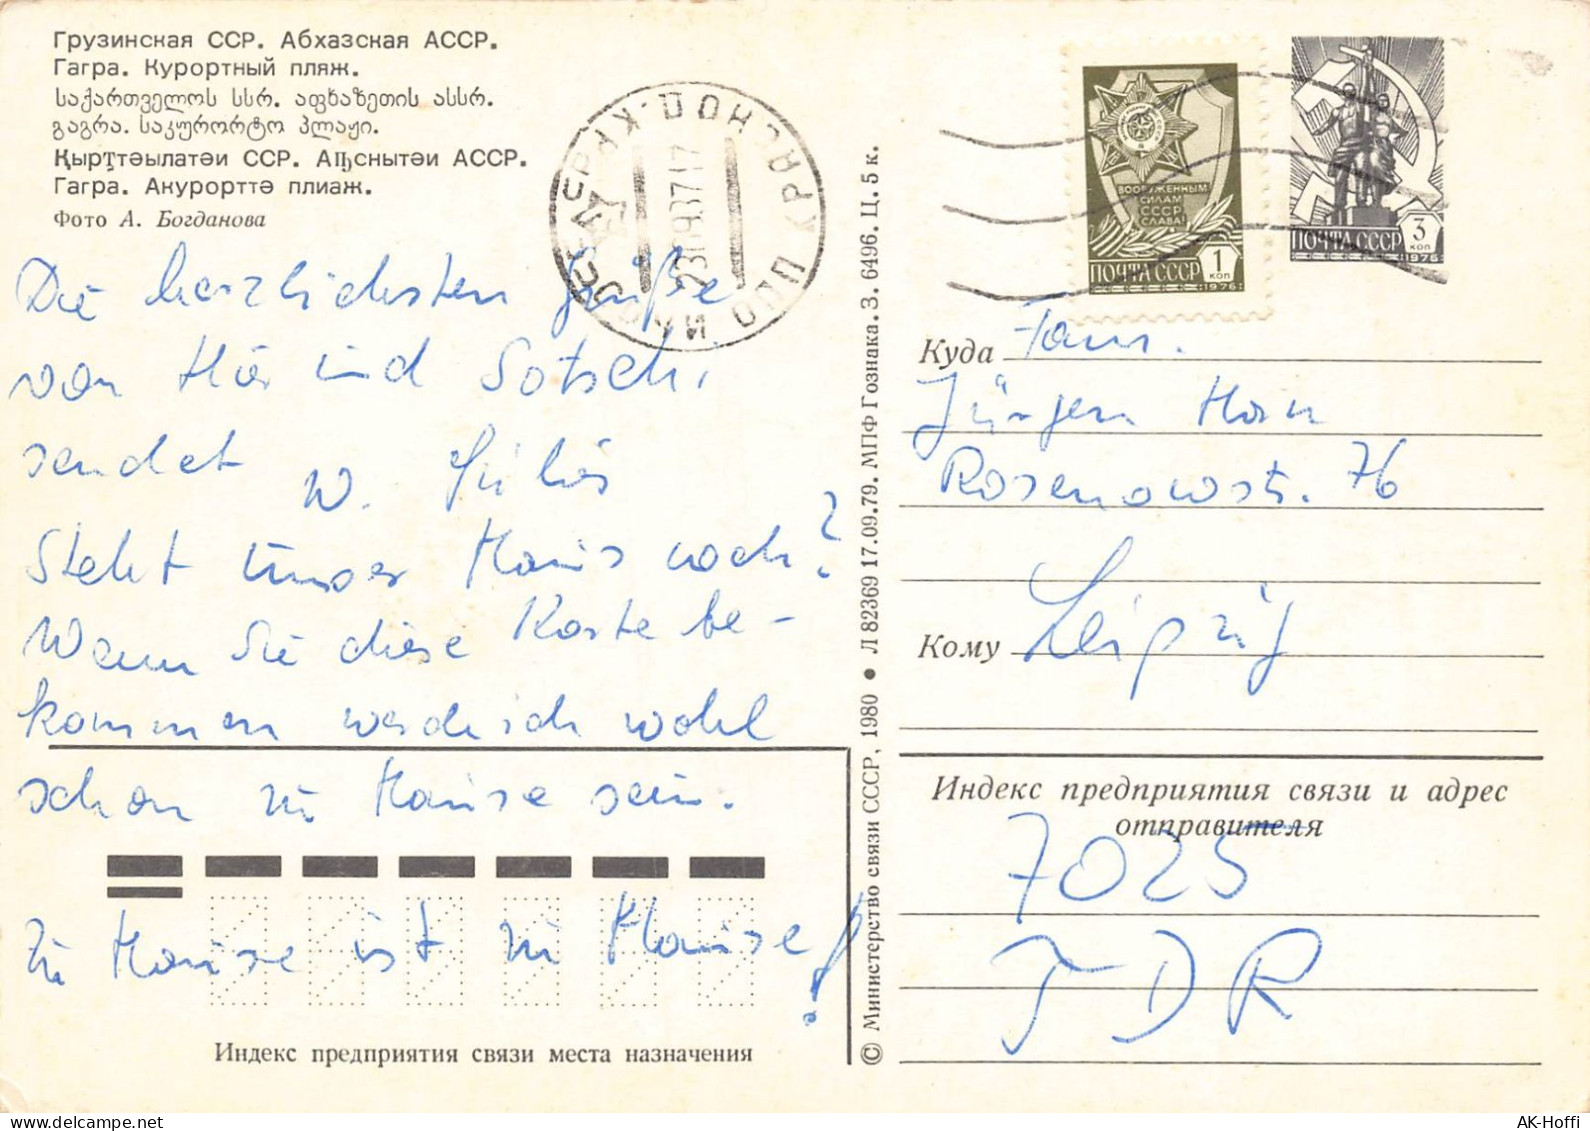 Грузинская ССР. Абхазская АССР.
Гагра. Курортный пляж.
საქართველოს სსრ. აფხაზეთის ასსრ.
გაგრა. საკურორტო პლაჟი.
Қырҭтәылатәи ССР. Аҧснытәи АССР.
Гагра. Акурорттә плиаж.
Фото А. Богданова
Die herzlichsten Grüße
von Hier und Sotschi
sendet W.
Steht unser Haus noch?
Wenn Sie diese Karte be-
kommen werde ich wohl
schon zu Hause sein.
Zu Hause ist zu Hause!
Индекс предприятия связи места назначения
© Министерство связи СССР, 1980 • Л 82369 17.09.79. МПФ Гознака. З. 6496. Ц. 5 к.
ВООРУЖЕННЫМ
СИЛАМ
СССР
СЛАВА!
ПОЧТА СССР 1 КОП
1976
ПОЧТА СССР 3 КОП
1976
Куда Fam.
Jürgen
76
Кому Leipzig
Индекс предприятия связи и адрес
отправителя
7025
DDR
AK-Hoffi